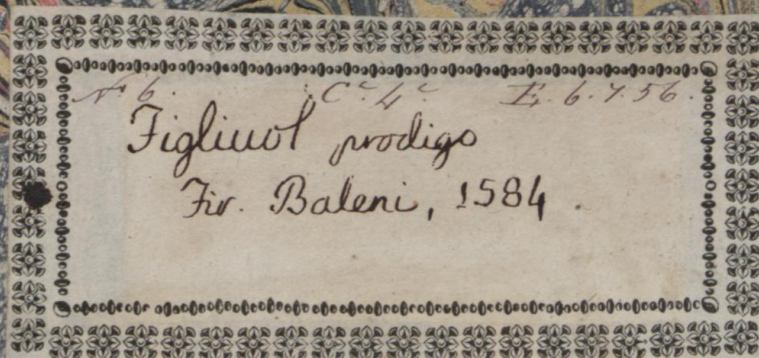 Nº 6. Cª. 4ª E. 6. 7. 56.
Figliuol prodigo
Fir. Baleni, 1584.